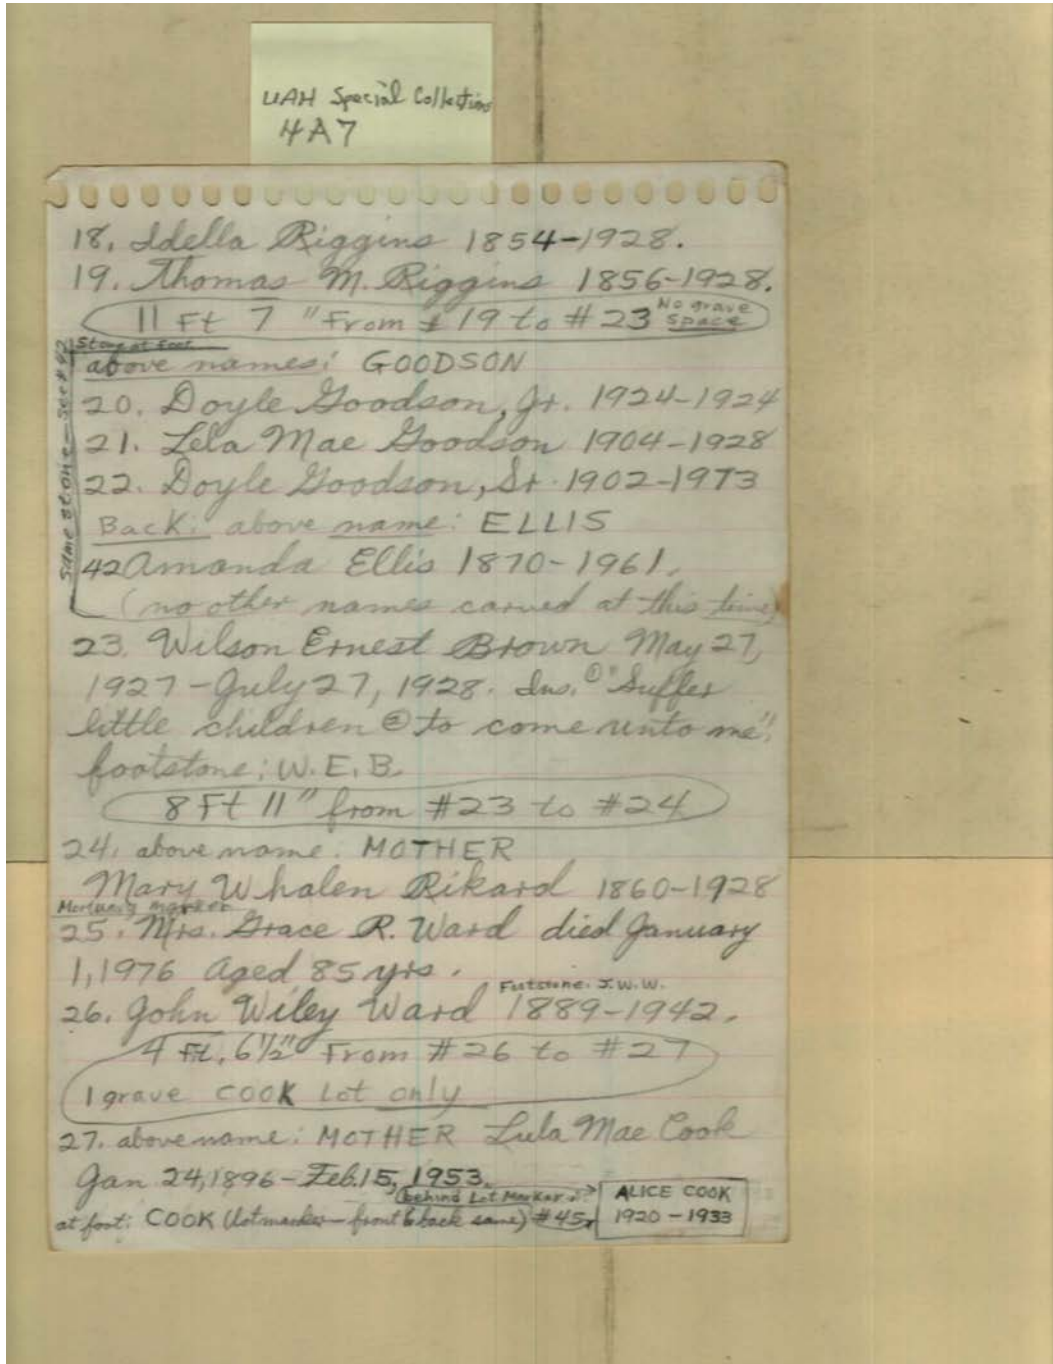 UAH Special Collections
4A7
18. Idella Riggins 1854-1928.
19. Thomas M. Riggins 1856-1928.
11 Ft 7 "From # 19 to # 23 No grave space
Stone at foot
above names: GOODSON
20. Doyle Goodson, Jr. 1924-1924
21. Lela Mae Goodson 1904-1928
22. Doyle Goodson, Sr. 1902-1973
Back: above name: ELLIS
42 Amanda Ellis 1870-1961.
(no other names carved at this time)
same stone - see # 42
23. Wilson Ernest Brown May 27,
1927 - July 27, 1928. Ins. ① "Suffer
little children ② to come unto me".
footstone: W. E. B.
8 Ft 11" from #23 to #24
24. above name: MOTHER
Mary Whalen Rikard 1860-1928
Mortuary marker
25. Mrs. Grace R. Ward died January
1, 1976 Aged 85 yrs.
Footstone: J. W. W.
26. John Wiley Ward 1889-1942.
4 Ft, 6½" From #26 to #27
1 grave COOK Lot only
27. above name: MOTHER Lula Mae Cook
Jan 24, 1896 - Feb. 15, 1953.
(behind Lot Marker:
at foot: COOK (lot marker - front & back same) #45
ALICE COOK
1920 - 1933